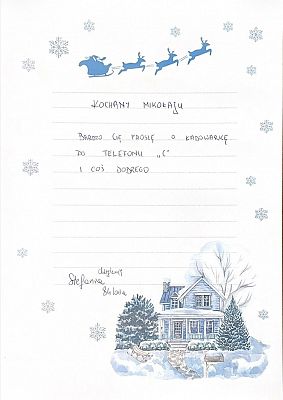 KOCHANY MIKOŁAJU
BARDZO CIĘ PROSZĘ O ŁADOWARKĘ
DO TELEFONU „C"
I COŚ DOBREGO
Stefania